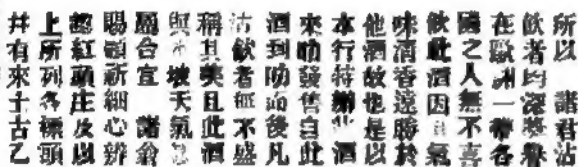 所以 諸君沾
飲者均深獎
在歐洲一帶各
國之人無不喜
飲此酒因其氣
味清香遠勝於
他酒故也是以
本行特辦此酒
來叻發售自此
酒到叻而後凡
沽飲者無不盛
稱其美且此酒
與本坡天氣
屬合宜 諸翁
賜顧祈細心辨
認紅頭庄及以
上所列各標頭
井有來十古乙